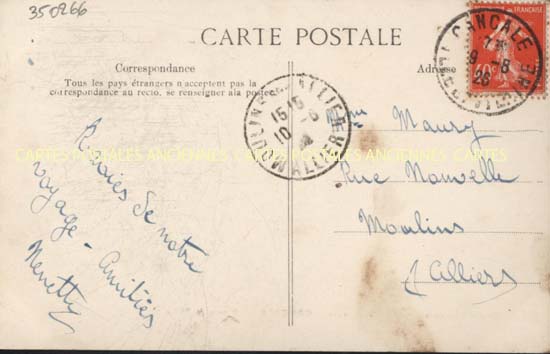 350266
CARTE POSTALE
Correspondance
Tous les pays étrangers n'acceptent pas la
correspondance au recto, se renseigner à la poste
Adresse
RÉPUBLIQUE FRANÇAISE
CANCALE
9-8
26
MOULINS ALLIER
15 15
10-8
ALLIER
CARTES POSTALES ANCIENNES CARTES POSTALES ANCIENNES CARTES
de notre
voyage - Amitiés
Nenette
Mme Maury
Rue Nouvelle
Moulins
Alliers